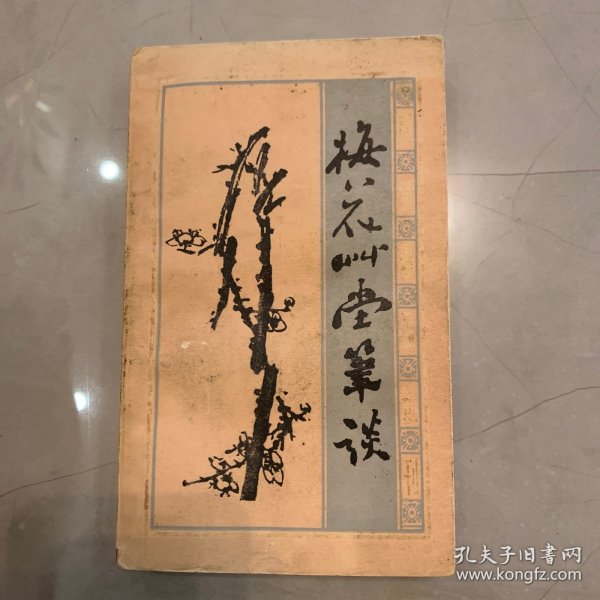 梅花艸堂筆談
孔夫子旧书网
www.kongfz.com